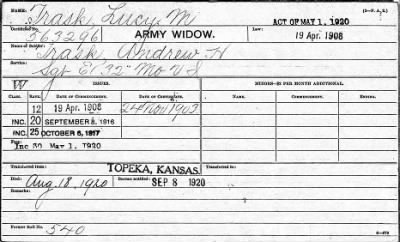 NAME: Trask, Lucy M. ACT OF MAY 1, 1920 (3-F.A.L.)
Certificate No. 563296 ARMY WIDOW. LAW: 19 Apr. 1908
Name of Soldier: Trask, Andrew H
Service: Sgt "E" 32" Mo V I
W ISSUES. MINORS—$2 PER MONTH ADDITIONAL.
CLASS. RATE. DATE OF COMMENCEMENT. DATE OF CERTIFICATE.
12 19 Apr. 1908 24 Nov 1903
INC. 20 SEPTEMBER 8, 1916
INC. 25 OCTOBER 6, 1917
Inc 30 May 1, 1920
Transferred from TOPEKA, KANSAS.
Died: Aug. 18, 1920 Bureau notified: SEP 8 1920
Former Roll No.
540